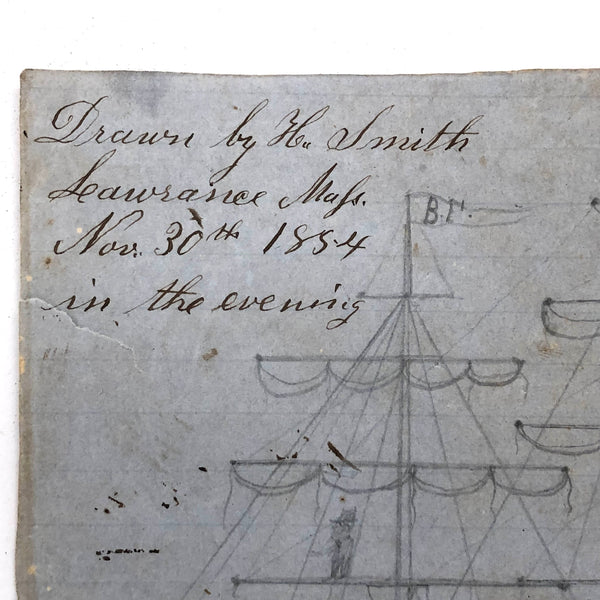 Drawn by H. Smith
Lawrance Mass.
Nov. 30th 1854
in the evening